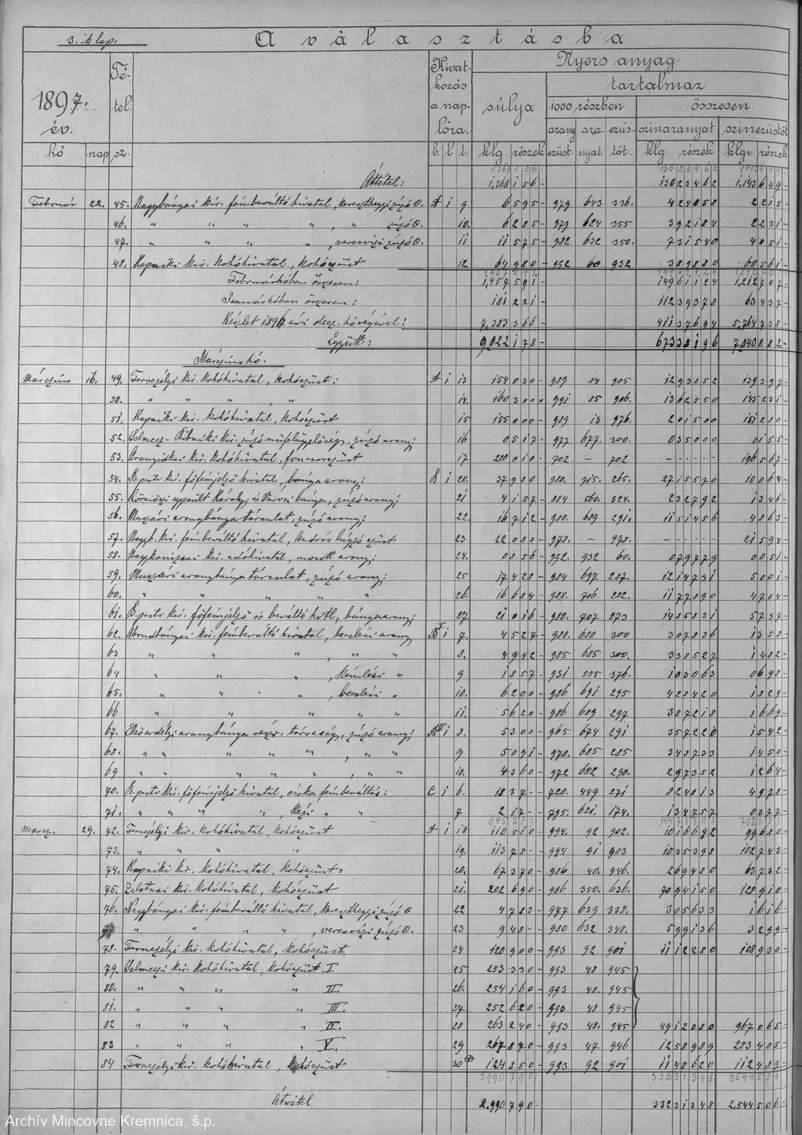 3. ik lap.
A választásba
1897. év.
Tétel sz.
Hivatkozás a naplóra.
Nyers anyag
súlya
tartalmaz
1000 részben
összesen.
arany ezüst. arany ezüst
nyat. töt.
szinaranyat szinezüstöt
hó nap sz. b. l. t. klg. részek klg. részek klgr. részek
Áttétel: 1,368 156 130 23462 1,143 649
Február 22. 45. Nagybányai kir. fémbeváltó hivatal, kereszthegyi zúzó A i 9 6595 979 643 336. 4 24058 2215
46. " " " " , " zúzó 10. 6285 979 624 355 3 92184 2231
47. " " " " , veresvizi zúzó 11 11575 982 632 350. 7 31540 4051
48. Kapniki kir. kohóhivatal, kohóezüst 12 64980 992 60 932 3 89880 60561
Februárhóban összesen: 1,457 591 149 61124 1,212 707
Januárhóban összesen: 181 221 112 39378 63 437
Készlet 1896 évi decz. hó végével: 7,383 366 411 37694 5,764 738
Együtt: 9,022 178 673 38196 7,040 882
Márczius hó.
Márczius 16. 49. Fernezélyi kir. kohóhivatal, kohóezüst: A i 13 154 030 989 84 905 12 93852 139 397
50. " " " , " 14. 160 300 991 85 906. 13 62550 145 231
51. Kapniki kir. kohóhivatal, kohóezüst 15 155 000 989 13 976. 2 01500 151 280
52. zúzó arany 16 0517 977 677 300. 0 35000 0155
53. Aranyidkai kir. kohóhivatal, foncsorezüst 17 280 010 702 - 702 196 567
54. B.pesti kir. főfémjelző hivatal, bánya arany: B i 20. 37 980 980. 715. 265. 27 15570 10 064
55. Károly és Városi bánya, zúzó arany 21 4157 884 560. 324. 2 32792 1346
56. Muzsári aranybánya társulat, zúzó arany 22. 16 712 980. 689 291. 11 51456 4863
57. Nagyb. kir. fémbeváltó hivatal, ezüst 23 22 080 978. - 978. 21 594
58. Nagykanizsai kir. adóhivatal, arany: 24. 0856 992. 932 60. 0 79779 0051
59. Muzsári aranybánya társulat, zúzó arany: 25 17 428 984 697 287. 12 14731 5001
60. " " " " 26. 16 684 988. 706. 282. 11 77890 4704
61. B.pesti kir. főfémjelző és beváltó hvtl, bányaarany: 27. 21 016 980. 707 273 14 85831 5737
62. Abrudbányai kir. fémbeváltó hivatal, arany B I i 7. 4527 980. 680 300 3 07836 1358
63 " " " " 8. 4942 985 685 300. 3 38527 1482
64 " " " " 9 1857 931 555 376. 1 03063 0698
65. " " " " 10. 6200 986 691 295 4 28420 1829
66 " " " " 11. 5620 986 689 297 3 87218 1669
67. aranybánya zúzó arany: B II i 8. 5300 965 674 291 3 57220 1542
68. " " " " 9 5091 970. 685 285 3 48733 1450
69 " " " " 10. 4360 972 682 290. 2 97352 1264
70. B.pesti kir. főfémjelző hivatal, fémbeváltás: C i 6. 1837 720. 449 271 8 24813 4978
71. " " " 7 217 795. 621. 174. 1 34757 0377
Marcz. 29. 72. Fernezélyi kir. kohóhivatal, kohóezüst A i 18 110 510 994. 92 902. 10 16692 99 680
73. " " " 19. 113 78 994 91 903 10 35398 102 743
74. Kapniki kir. kohóhivatal, kohóezüst 20. 67 370 986 40. 946. 2 69480 63 732
75. Zalatnai kir. kohóhivatal, kohóezüst 21. 202 690 986 350. 636. 70 94150 128 910
76. Nagybányai kir. fémbeváltó hivatal, kereszthegyi zúzó 22 4783 977 639 338. 3 05633 1616
" " " " , veresvizi zúzó 23 948 980 632 348. 5 99136 3299
78. Fernezélyi kir. kohóhivatal, kohóezüst, 24 120 900 993 92 901 11 12280 108 930
79. Selmeczi kir. kohóhivatal, kohóezüst I 25 253 330 993 48 945
80. " " " " II. 26. 254 160 993 48. 945
81. " " " " III. 27 252 620 993 48 945
82 " " " " IV. 28 263 240 993 48. 945 49 12080 967 065
83 " " " " V. 29 267 870 993 47 946 12 58989 253 405
84 Fernezélyi kir. kohóhivatal, kohóezüst 30 124 850 993 92 901 11 48620 112 489
Átvitel 2,990 790 332 31348 2,544 506
Archív Mincovne Kremnica, š.p.